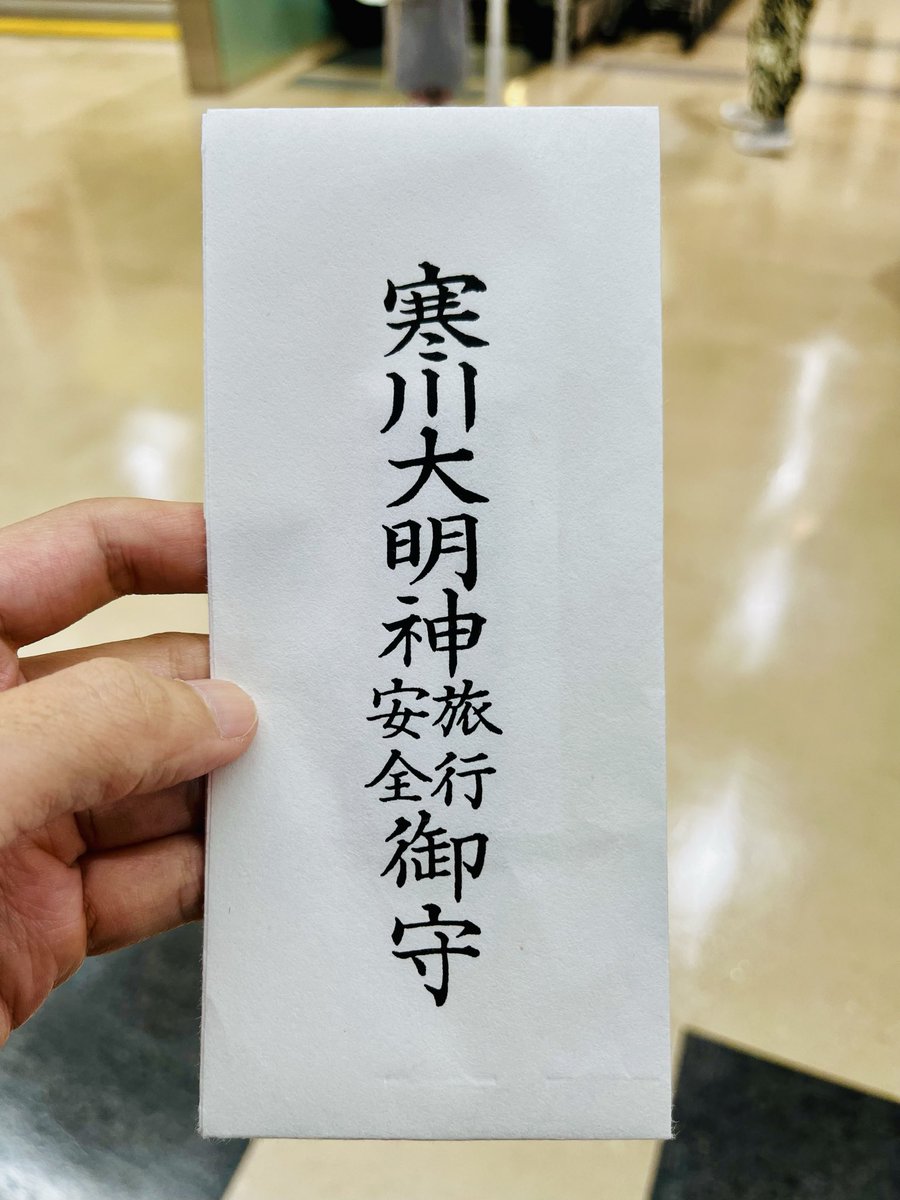 寒川大明神旅行安全御守